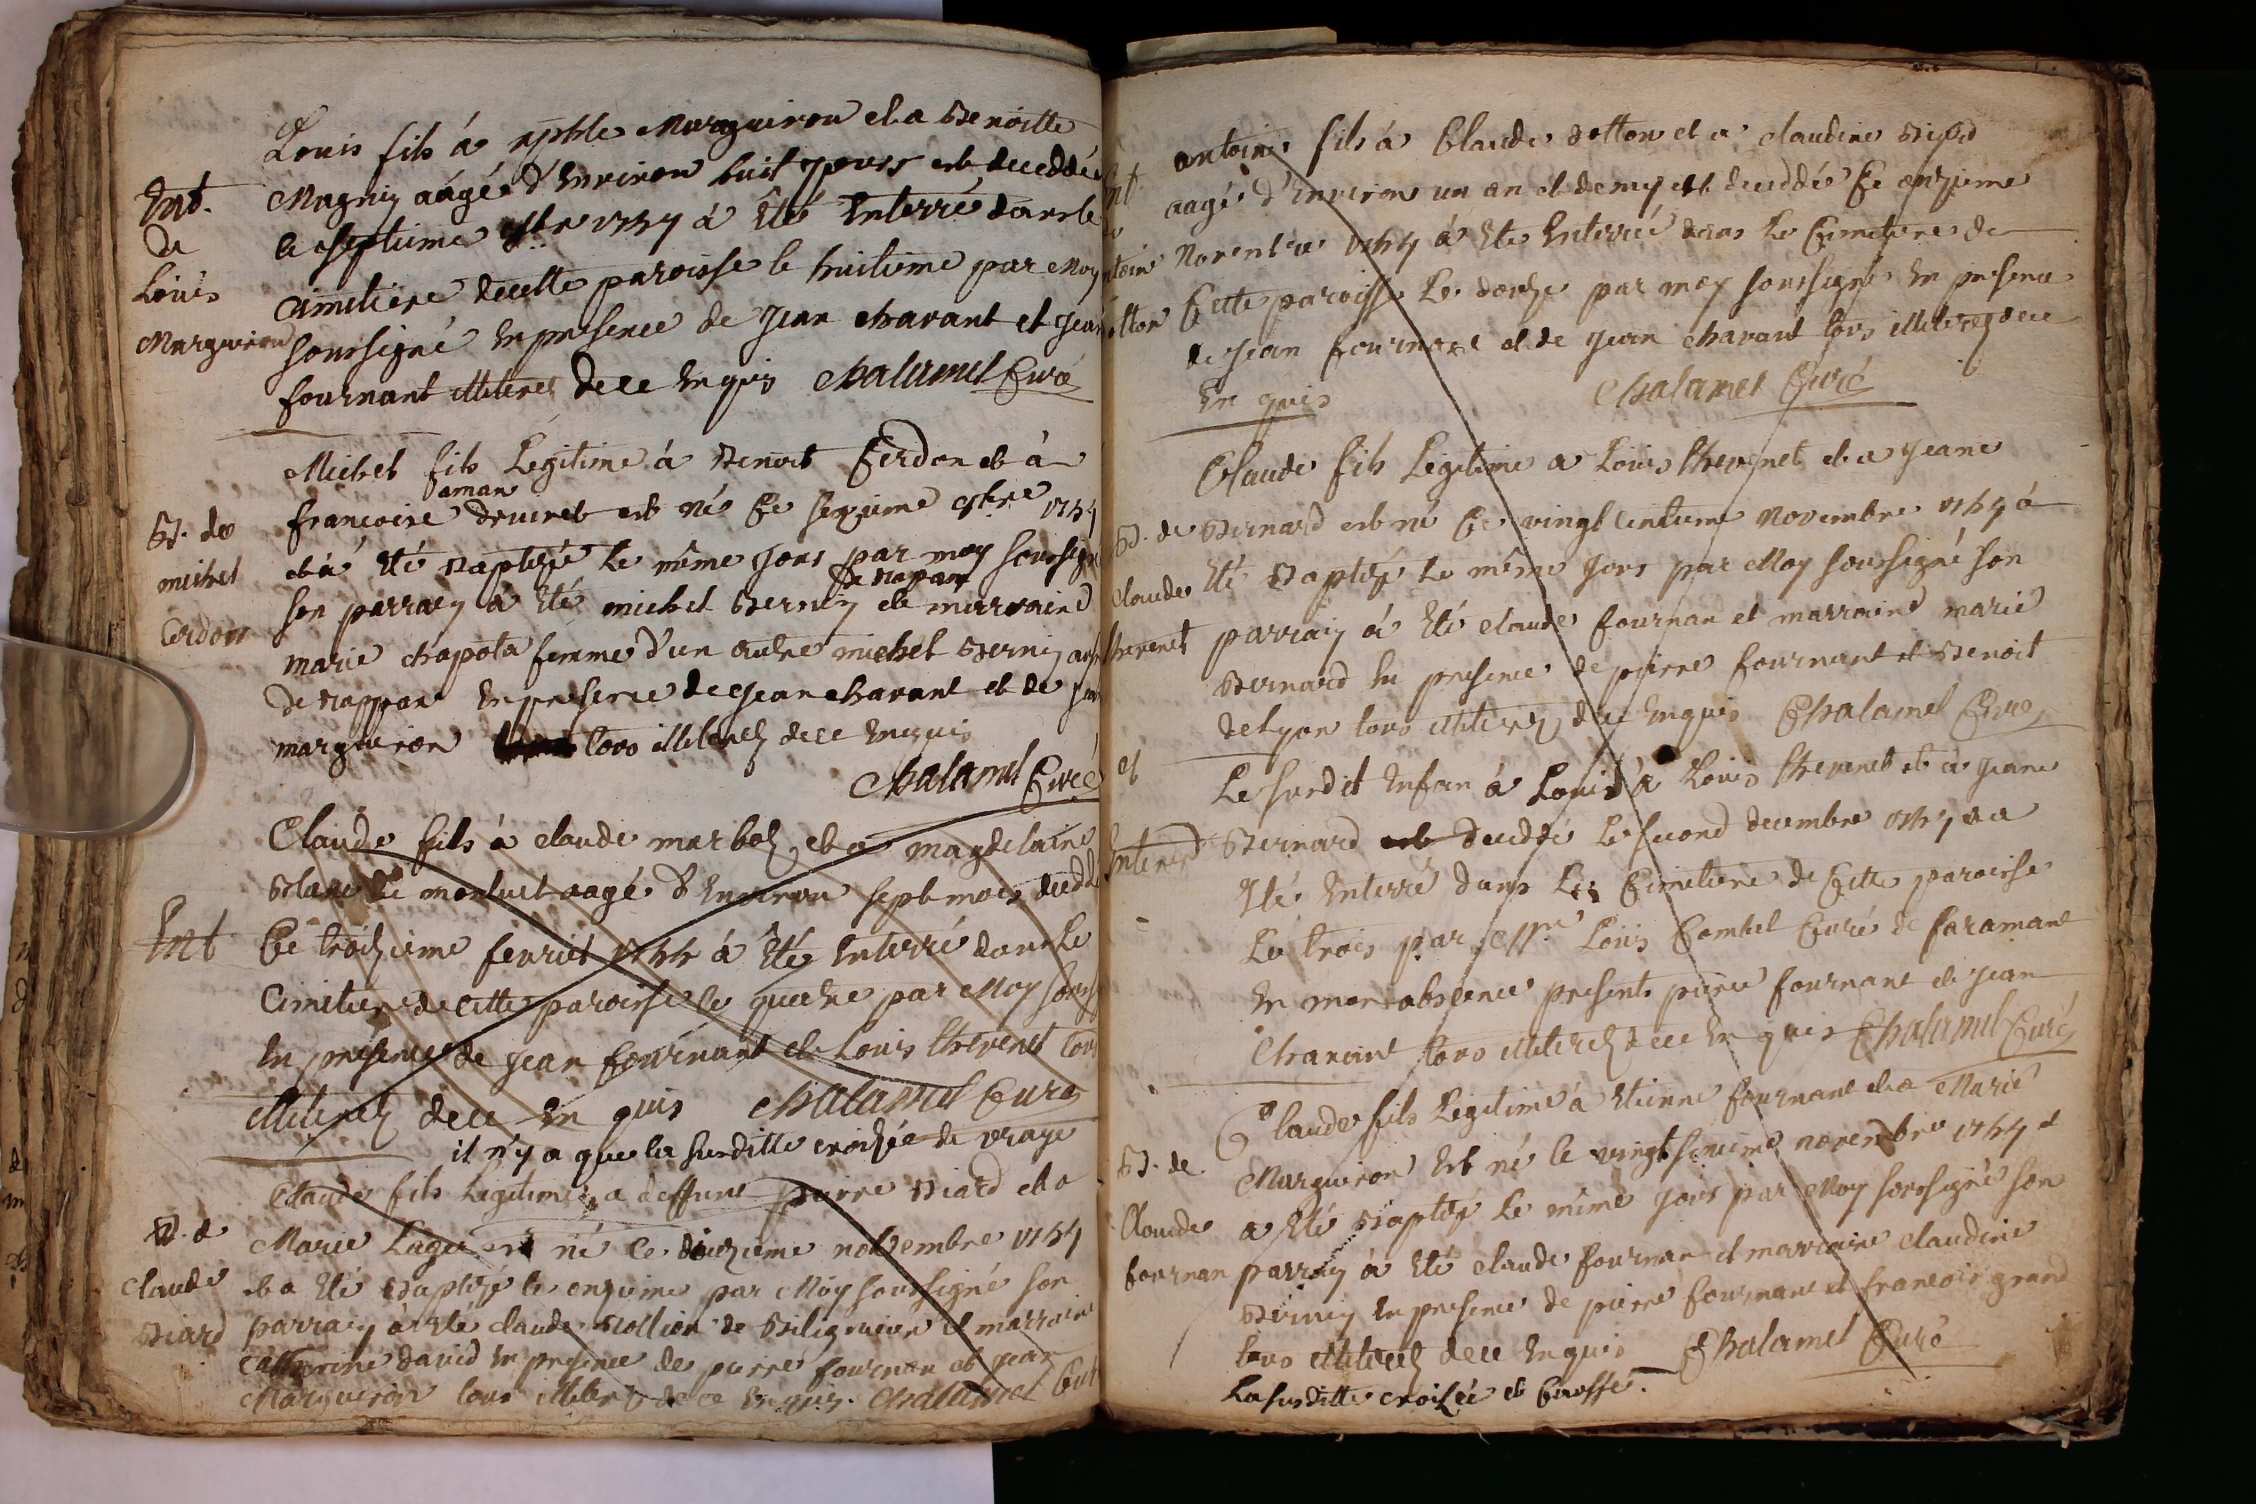 Louis fils à Margueron et a Benoitte
Int. Magnin aagé d'Environ huit jours est deceddé
de le septieme à Eté Enterré dans le
Louis Cimetiere de cette paroisse le huitieme par Moy
Margueron soussigné En presence de Jean Chavant et Jean
fournant illiteres de ce Enquis Chalamel Curé
Michel fils Legitime à Benoit Cerdon et à
aman
B. de francoise druinet est né Ce
et à Eté Baptizé le même jour par moy soussigné
michel son parrain à Eté michel Bernin et marraine
de rapan
Cerdon marie chapota femme d'un autre michel Bernin
de rappan En presence de Jean Chavant et de
margueron tous illiterez de ce Enquis
Chalamel Curé
Claude fils à claude marboz et a magdelaine
Blanc de montluel aagé d'Environ sept mois decedde
Int Ce troizieme fevrier à Eté Enterré dans Le
Cimetiere de Cette paroisse le quatre par Moy
En presence de jean fournant et Louis thevenet tous
illiterez de ce En quis Chalamel Curé
il n'y a que la susditte croizée de vraye
Claude fils Legitime a deffunt pierre Biard et a
B. d Marie Lager est né le novembre
Claude et a Eté Baptizé le onzieme par Moy soussigné son
Biard parrain à Eté claude Bollion de Beligneux et marraine
Catherine david En presence de pierre fournan et jean
Margueron tous illiterez de ce Enquis. Chalamel Curé
antoine fils à Claude dotton et a claudine
aagé d'Environ un an et demy est decedde Ce onzieme
Novembre à Eté Enterré dans Le Cimetiere de
Cette paroisse Le douze par moy soussigné En presence
de Jean fournant et de Jean chavant tous illiterez de ce
En quis Chalamel Curé
Claude fils Legitime a Louis thevenet et a Jeane
B. de Bernard est né Ce vingt Novembre à
Claude Eté Baptizé Le même jour par Moy soussigné son
thevenet parrain à Eté claude fournan et marraine marie
Bernard En presence de pierre fournant et Benoit
de Lyon tous illiterez de ce Enquis Chalamel Curé
et Le susdit Enfan à Louis à Louis thevenet et à Jeane
Enterré Bernard est decedde Le second decembre
Eté Enterré dans Le Cimetiere de Cette paroisse
Le trois par Louis Curé de faramant
En mon absence presents pierre fournant et jean
Chavant tous illiterez de ce En quis Chalamel Curé
Claude fils Legitime à Etienne fournant et a Marie
B. de Margueron Est né le vingt novembre
Claude a Eté Baptizé Le même jour par Moy soussigné son
fournan parrain à Eté claude fournan et marraine claudine
Bernin En presence de pierre fournant et francois grand
tous illiterez de ce Enquis Chalamel Curé
La susditte croizée et Causse.